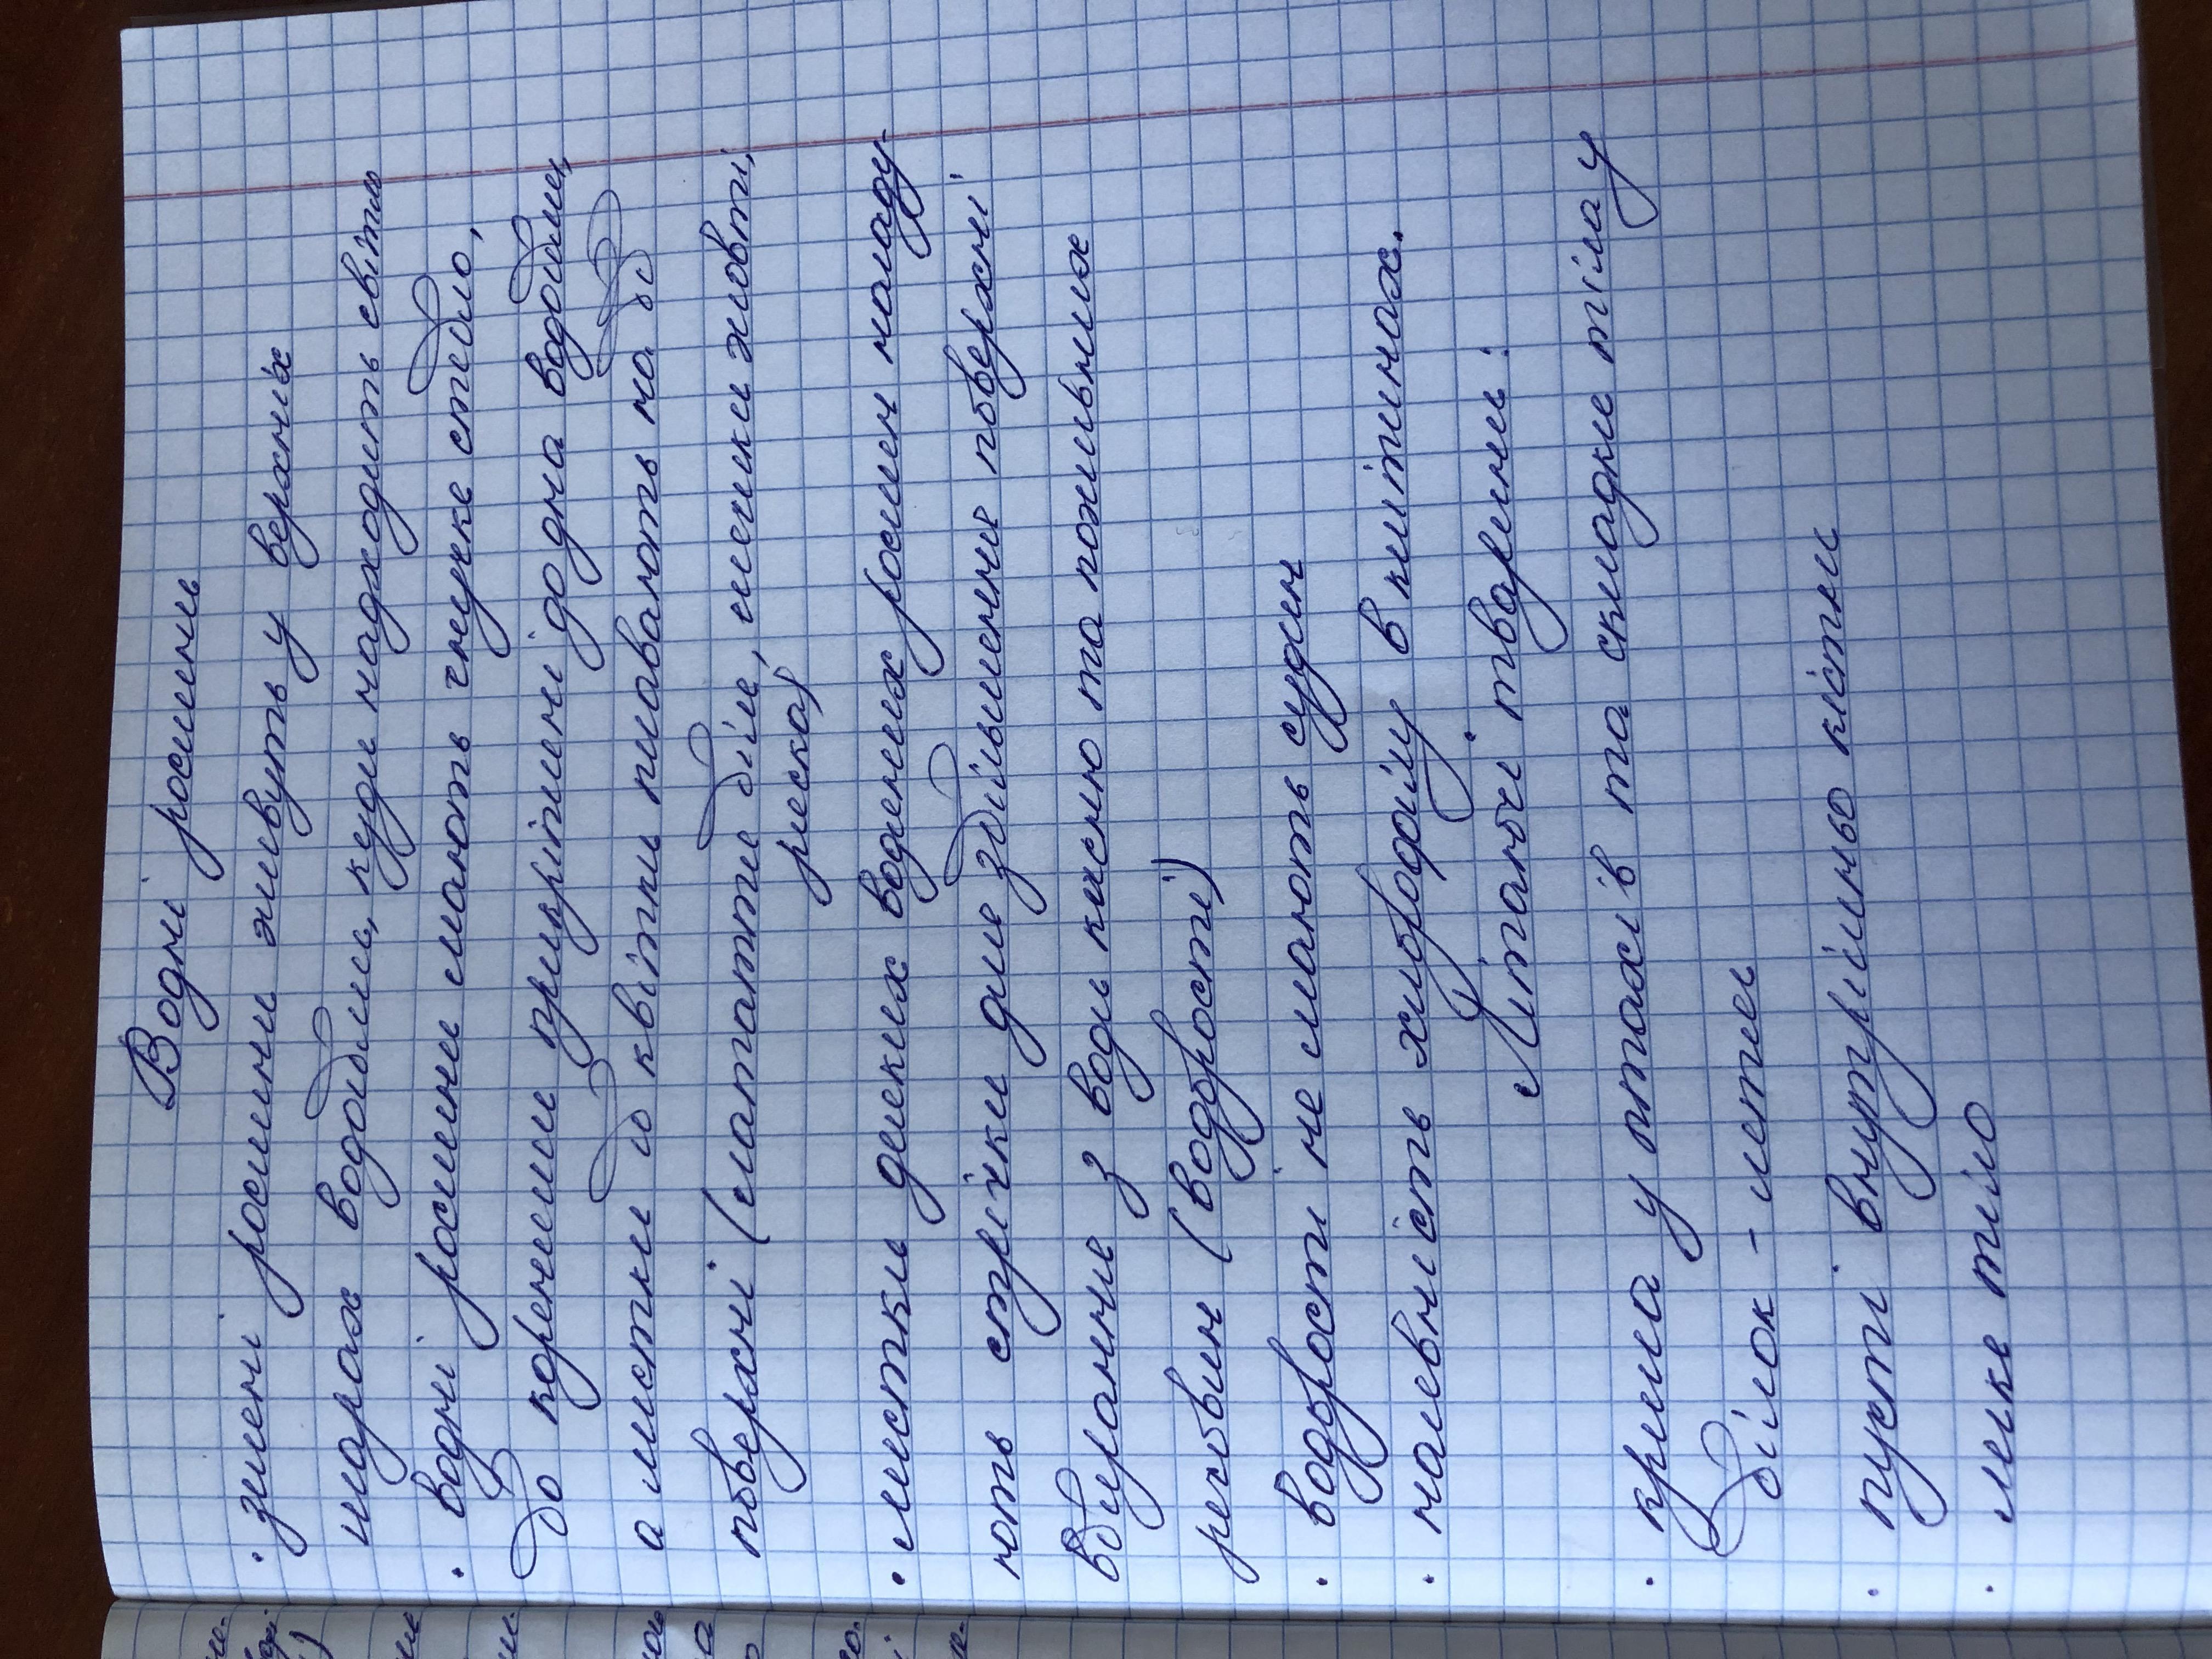 Водні рослини
· зелені рослини живуть у верхніх
шарах водойми, куди надходить світло
· водні рослини мають гнучке стебло,
бо коренями прикріплені до дна водойми,
а листки й квітки плавають на її
поверхні (латаття біле, глечики жовті,
ряска)
· листки деяких водяних рослин нагаду-
ють стрічки для збільшення поверхні
вбирання з води кисню та поживних
речовин (водорості)
· водорості не мають судин
· наявність хлорофілу в клітинах.
Літаючі тварини:
· крила у птахів та складки тіла у
білок - летяг
· пусті внутрішньо кістки
· легке тіло